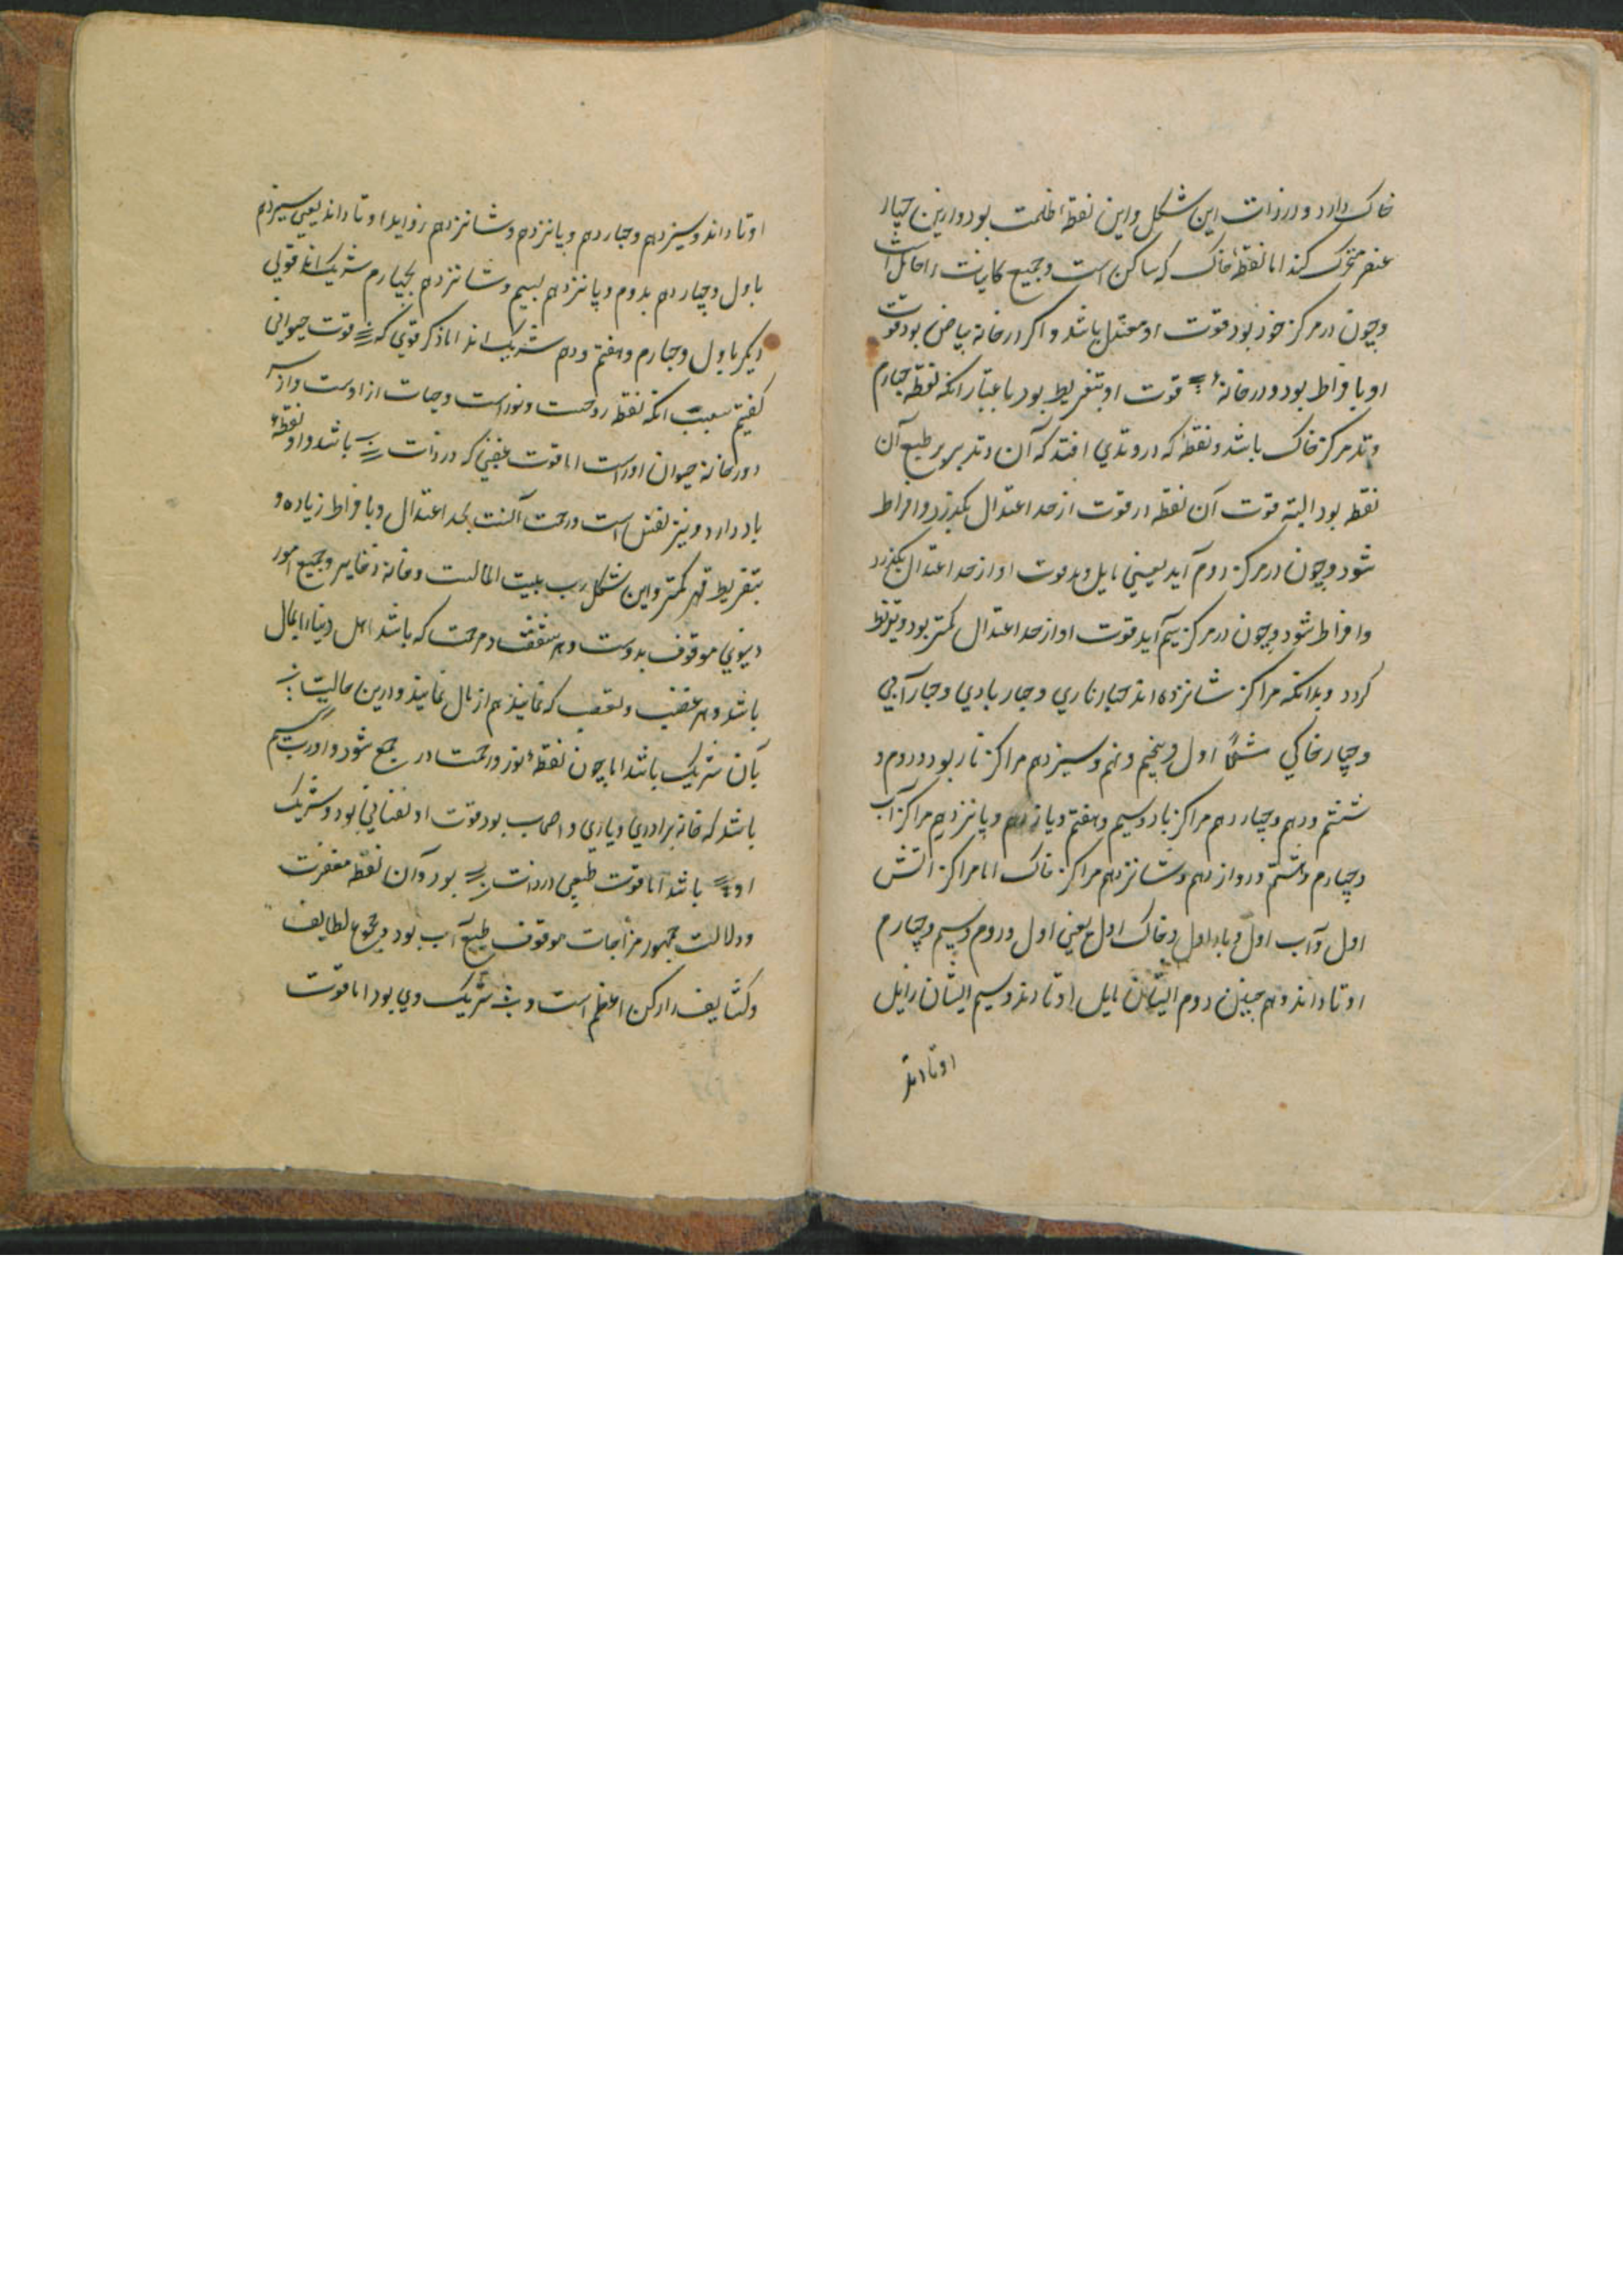 خاک دارد و در ذات این شکل و این نقطهٔ ظلمت بود و ازین چهار
عنصر متحرک کند اما نقطهٔ خاک که ساکن است و جمیع کاینات را حامل است
و چون در مرکز خود بود قوت او معتدل باشد و اکر در خانه بیاض بود قوت
او بافراط بود و در خانهٔ قوت او بتفریط بود باعتبار آنکه نقطه چهارم
وتد مرکز خاک باشد و نقطهٔ که در وتدی افتد که آن وتد بر طبع آن
نقطه بود البته قوت آن نقطه از قوت از حد اعتدال بکذرد و افراط
شود و چون در مرکز دوم آید یعنی مایل وتد قوت او از حد اعتدال بکذرد
و افراط شود و چون در مرکز سیم آید قوت او از حد اعتدال کمتر بود و تفریط
کردد و بدانکه مراکز شانزده اند چهار ناری و چهار بادی و چهار آبی
و چهار خاکی مثلاً اول و پنجم و نهم و سیزدهم مراکز نار بود و دوم و
ششم و دهم و چهاردهم مراکز باد و سیم و هفتم و یازدهم و پانزدهم مراکز آب
و چهارم و هشتم و دوازدهم و شانزدهم مراکز خاک اما مراکز اتش
اول و آب اول و باد اول و خاک اول یعنی اول و دوم و سیم و چهارم
اوتاد اند و هم چنین دوم ایشان مایل اوتادند و سیم ایشان زایل
اوتادند
اوتاد اند و سیزدهم و چهاردهم و پانزدهم و شانزدهم زواید اوتاد اند یعنی سیزدهم
باول و چهاردهم بدوم و پانزدهم بسیم و شانزدهم بچهارم شریک اند قولی
دیکر باول و چهارم و هفتم و دهم شریک اند اما ذکر قوتی که قوت حیوانی
کفتیم سبب آنکه نقطه روحست و نور است و حیات از اوست و از
دور خانه حیوان اوراست اما قوت که در ذات باشد و او نقطهٔ
باد دارد و نیز نفس است و رحمت آنست بحد اعتدال و بافراط زیاده و
بتفریط قهر کمتر و این شکل رب بیت المالست و خانه ذخایر و جمیع امور
دنیوی موقوف بدوست و هر شفقت و مرحمت که باشد اهل دنیا را بمال
باشد و هر غضب و تعصب که نمایند هم از مال نمایند و درین حالیت
بآن شریک باشد اما چون نقطهٔ نور و رحمت در جمع شود و او رب سیم
باشد که خانه برادری و یاری و اصحاب بود قوت او نفسانی بود و شریک
او باشد اما قوت طبیعی در ذات بود و آن نقطه مغفرت
و دلالت جمهور مزاجات موقوف طبع آب بود و مجموع لطایف
و کثایف را رکن اعظم است و شریک وی بود اما قوت